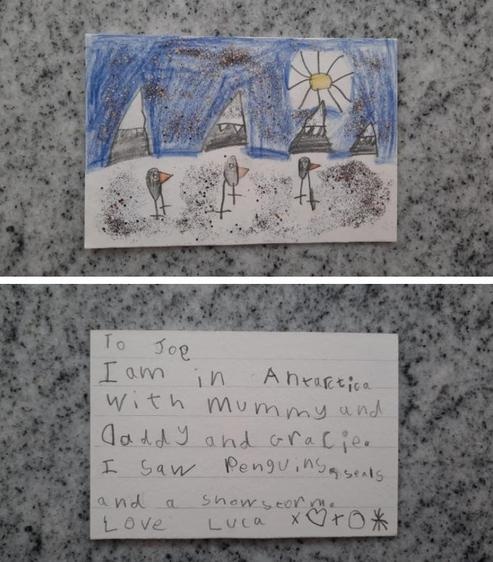 To Joe
I am in Antarctica
With Mummy and
Daddy and Gracie.
I saw Penguins, seals
and a snowstorm.
Love Luca x♡+O*